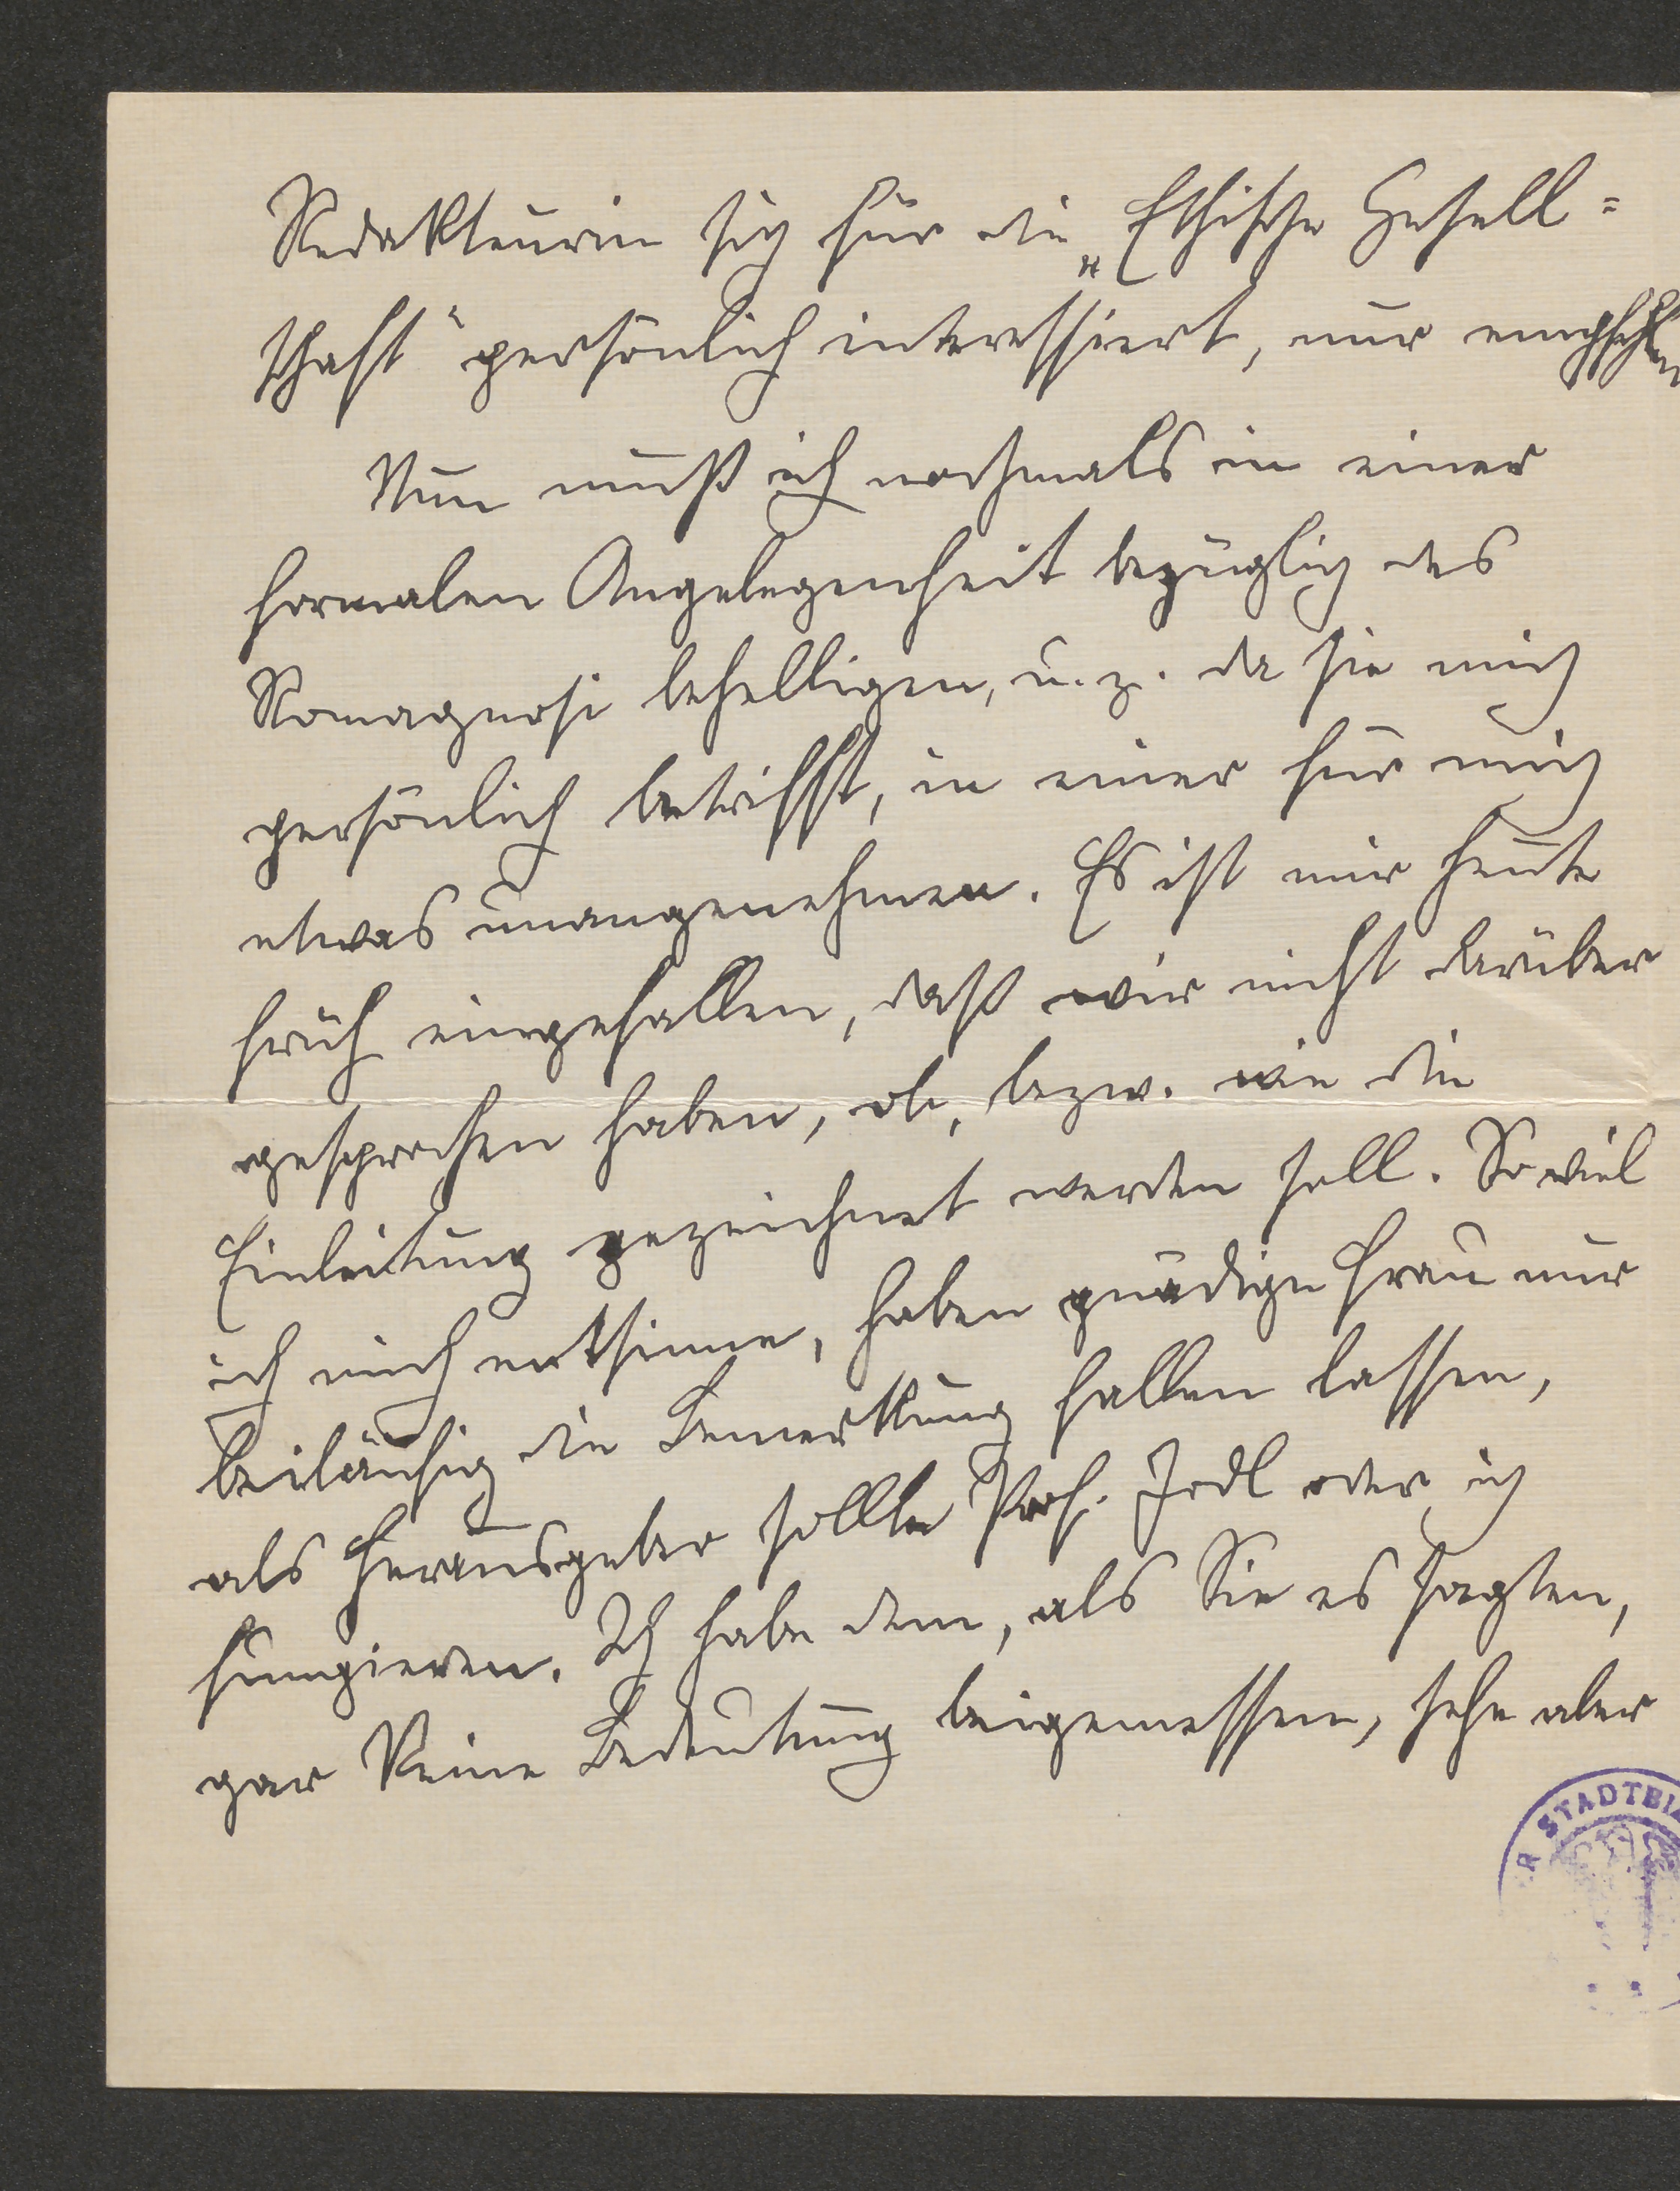 Redakteurin sich für die „Ethische Gesell=
schaft“ persönlich interessiert, nur empfehlen
Nun muß ich nochmals in einer
formalen Angelegenheit bezüglich des
Romagnosi behelligen, u. z. da sie mich
persönlich betrifft, in einer für mich
etwas unangenehmen. Es ist mir heute
früh eingefallen, daß wir nicht darüber
gesprochen haben, ob, bezw. wie die
Einleitung gezeichnet werden soll. Soviel
ich mich entsinne, haben gnädige Frau nur
beiläufig die Bemerkung fallen lassen,
als Herausgeber sollte Prof. Jodl oder ich
fungieren. Ich habe dem, als Sie es sagten,
gar keine Bedeutung beigemessen, sehe aber